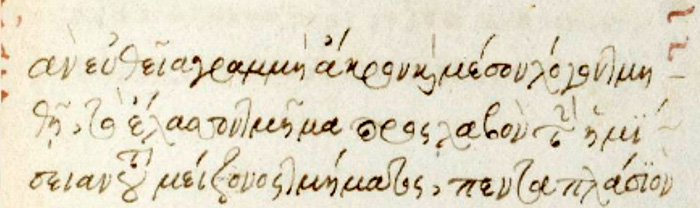 ἀν εὐθεῖα γραμμὴ ἄκρον κ μέσον λόγον τμη
θῇ, τὸ ἔλασσον τμῆμα προς λαβὸν τὴν ἡμί
σειαν τοῦ μείζονος τμήματος, πενταπλάσϊον